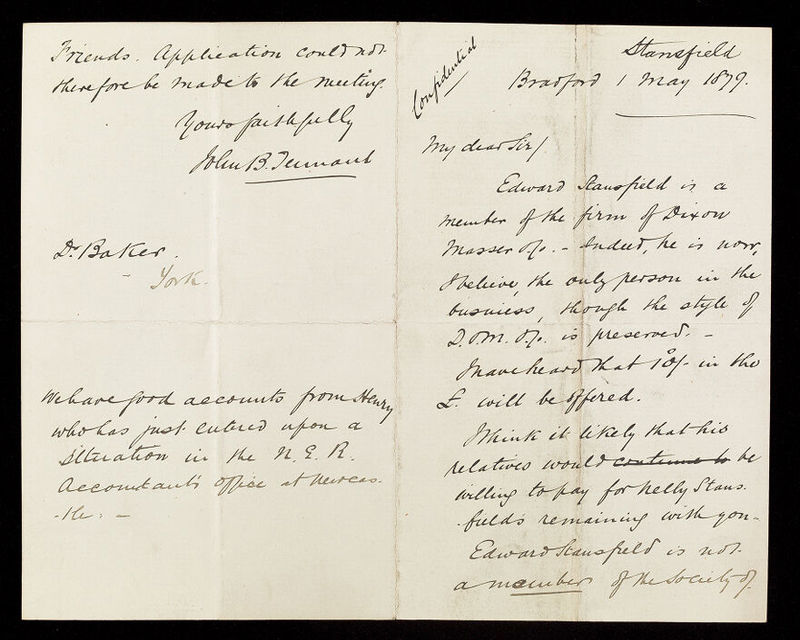 Confidential
Stansfield
Bradford 1 May 1879.
My dear Sir/
Edward Stansfield is a
member of the firm of Dixon
Masser & Co. - Indeed, he is now,
I believe, the only person in the
business, though the style of
D. & M. & Co. is preserved. -
I have heard that 10/- in the
£. will be offered.
I think it likely that his
relatives would continue to be
willing to pay for Nelly Stans-
field's remaining with you -
Edward Stansfield is not
a member of the Society of
Friends. Application could not
therefore be made to the meeting.
Yours faithfully
John B. Tennant
Dr. Baker.
York.
We have good accounts from Henry
who has just entered upon a
situation in the N. E. R.
Accountant's office at Newcas-
-tle. -